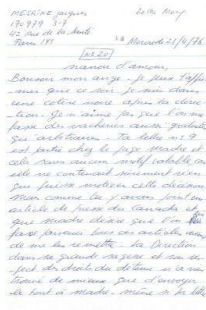 MESRINE jacques
17-2979 3-7
42 Rue de la Santé
Paris 14e
le Mercredi 21/4/76
n° 20
manou d'amour,
Bonjour mon ange. je peux t'affir
mer que ce soir je suis dans
une colère noire après la direc-
tion. je n'aime pas que l'on me
fasse des vacheries aussi gratuites
que ta lettre n°
est partie chez le juge Madre et
cela sans aucun motif valable, car
elle ne contenait sûrement rien
qui puisse motiver cette décision
Mais comme il y avait un
article de presse du Canada et
que Madre désire que l'on
fasse parvenir tous ces articles avant
de me les remettre. La Direction
dans sa grande sagesse et son res-
pect des droits du détenu n'a rien
trouvé de mieux que d'envoyer
le tout à Madre. même si la lettre